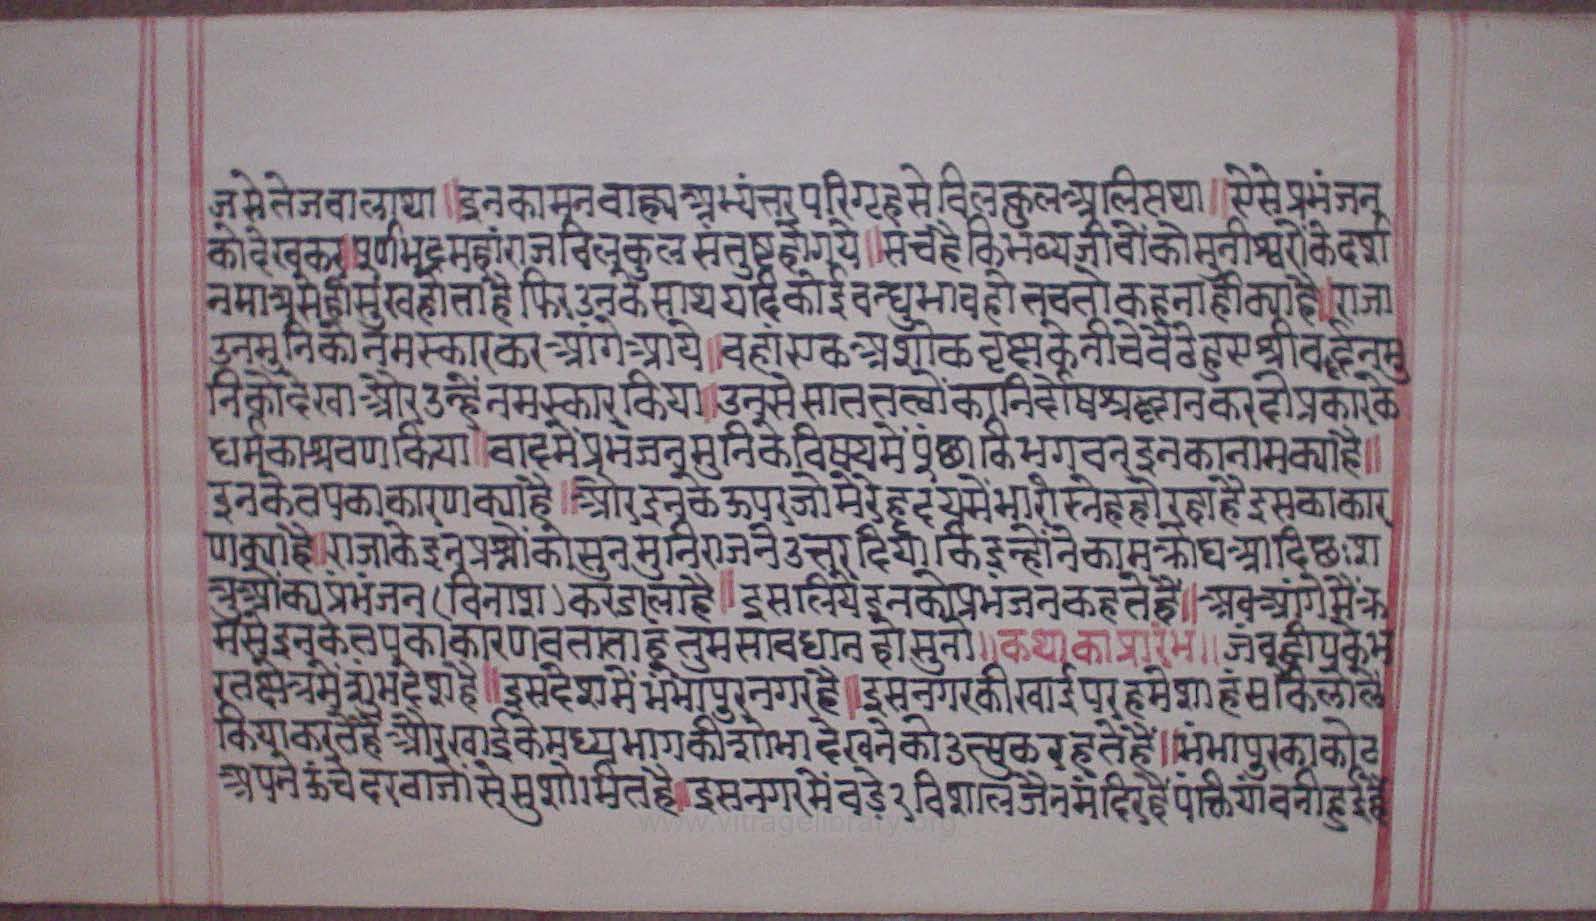 ज से तेजवालाथा ॥ इनकामनवाह्यअभ्यंत्तर परिगृहसे विलकुलअलिसथा ॥ ऐसे प्रभंजन
कोदेखकर ॥ पूर्णभद्रमहांराजविलकुल संतुष्टहोगये ॥ सचहै किभव्यजीवोंकोमुनीश्वरोंकेदर्श
नमात्रसेहीसुखहोताहै फिरउनकेसाथ यदिकोईवन्धुभावहो तवतोकहनाहीक्याहै ॥ राजा
उनमुनिकोनमस्कारकरआंगेआये ॥ वहांएकअशोकवृक्षकेनीचेवैठेहुएश्रीवर्द्धनमु
निकोदेखाऔरउन्हेंनमस्कारकिया ॥ उनसेसाततत्वोंकानिर्दोषश्रद्धानकरदोप्रकारके
धर्मकाश्रवणकिया ॥ वादमेंप्रभंजनमुनिकेविषयमेंपूंछाकिभगवनइनकानामक्याहै ॥
इनकेतपकाकारणक्याहै ॥ औरइनकेऊपरजोमेरेहृदयमेंभारीस्नेहहोरहाहैइसकाकार
णक्याहै ॥ राजाकेइनप्रश्नोंकोसुनमुनिराजनेउत्तरदियाकिइन्होंनेकामक्रोधआदिछःश
त्रुओंक्यप्रभंजन(विनाश)करडालाहै ॥ इसलियेइनकोप्रभंजनकहतेहैं ॥ अवआंगेमैंक्र
मसेइनकेतपकाकारणवताताहूतुमसावधानहोसुनो ॥ कथाकाप्रारंभ ॥ जंवूद्वीपकेभ
रतक्षेत्रमेंशुभदेशहै ॥ इसदेशमेंभंभापुरनगरहै ॥ इसनगरकीखाईपरहमेशाहंसकिलोलें
कियाकरतेहैऔरखाईकेमध्यभागकीशोभादेखनेकोउत्सुकरहतेहैं ॥ भंभापुरकाकोट
अपनेऊंचेदरवाजोंसेसुशोभितहै ॥ इसनगरमेंवड़े२विशालजैनमंदिरहैंपंक्तियांवनीहुईहैं
www.vitragelibrary.org